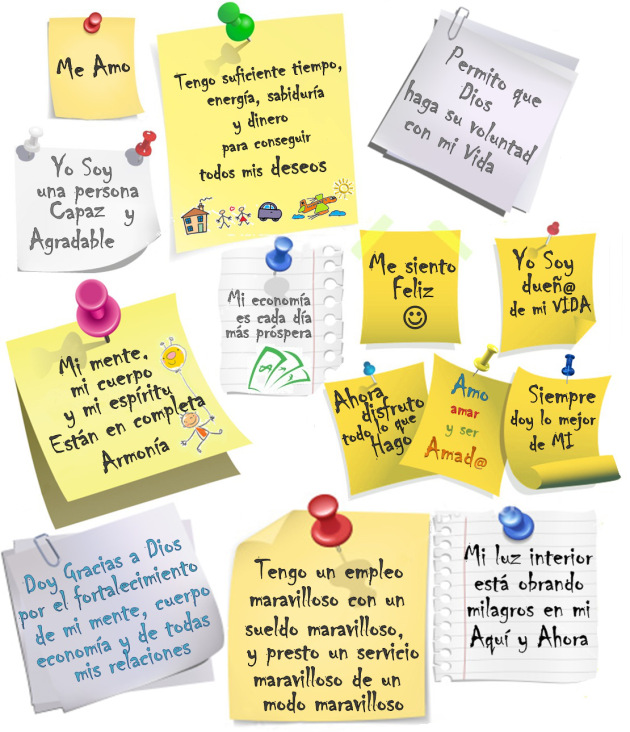 Me Amo
Tengo suficiente tiempo,
energía, sabiduría
y dinero
para conseguir
todos mis deseos
Permito que
Dios
haga su voluntad
con mi Vida
Yo Soy
una persona
Capaz y
Agradable
Mi economía
es cada día
más próspera
Me siento
Feliz
Yo Soy
dueñ@
de mi VIDA
Mi mente,
mi cuerpo
y mi espíritu
Están en completa
Armonía
Ahora
disfruto
todo lo que
Hago
Amo
amar
y ser
Amad@
Siempre
doy lo mejor
de MI
Doy Gracias a Dios
por el fortalecimiento
de mi mente, cuerpo
economía y de todas
mis relaciones
Tengo un empleo
maravilloso con un
sueldo maravilloso,
y presto un servicio
maravilloso de un
modo maravilloso
Mi luz interior
está obrando
milagros en mi
Aquí y Ahora